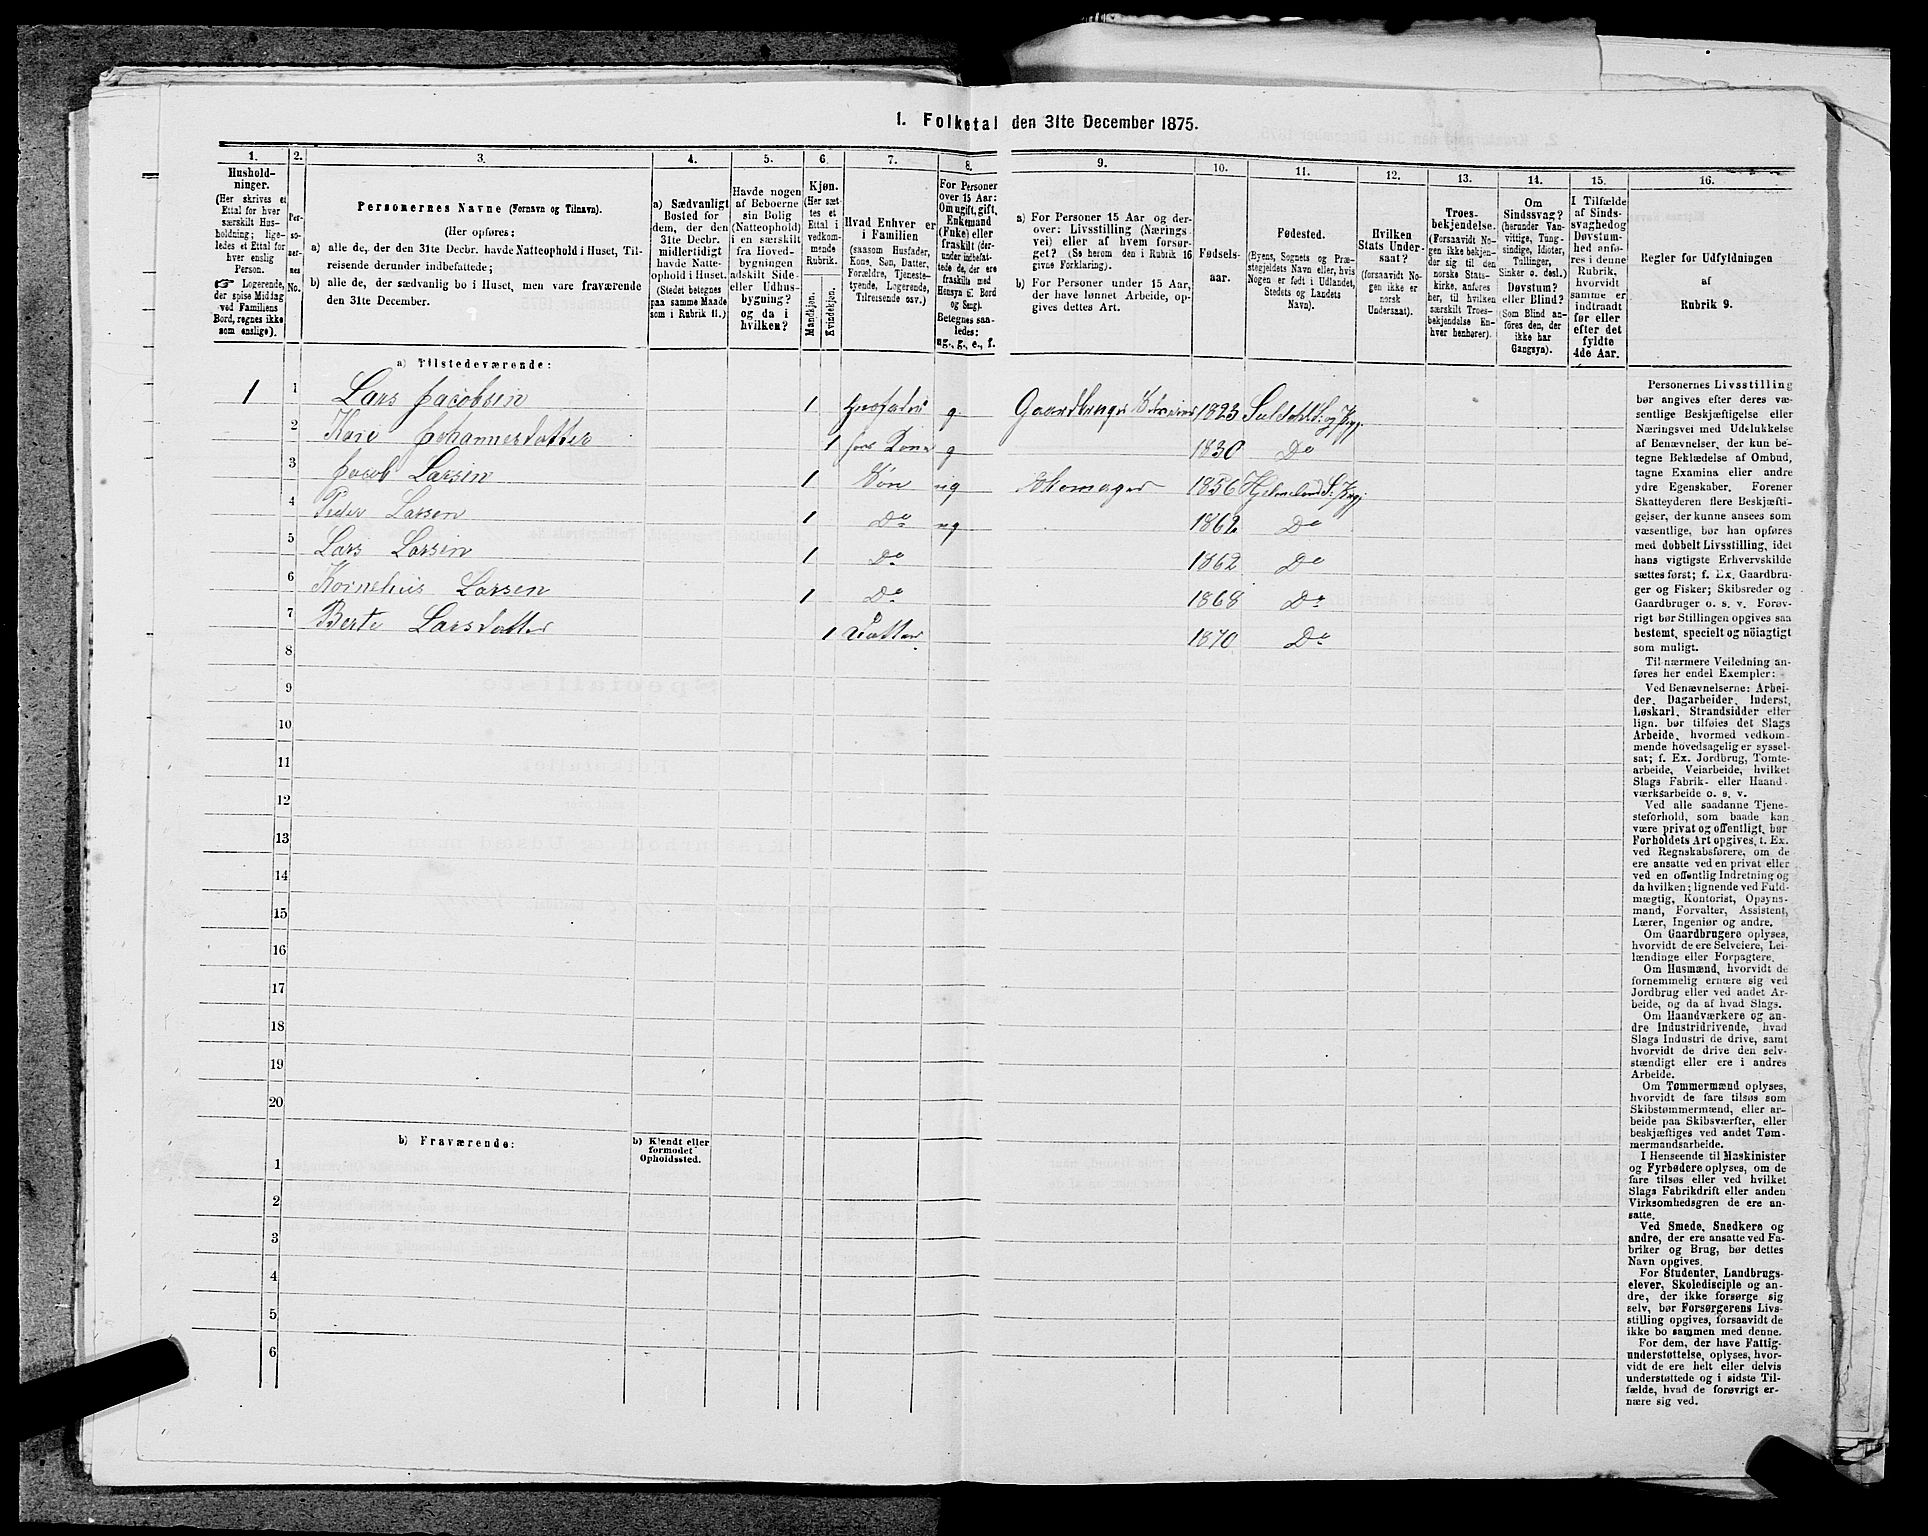 1. Folketal den 31te December 1875.
1. 2. 3. 4. 5. 6. 7. 8. 9. 10. 11. 12. 13. 14. 15. 16.
Hushold-
ninger.
(Her skrives et
Ettal for hver
særskilt Hus-
holdning; lige-
ledes et Ettal for
hver enslig
Person.
☞ Logerende,
der spise Middag
ved Familiens
Bord, regnes ikke
som enslige).
Per-
so-
ner-
nes
No.
Personernes Navne (Fornavn og Tilnavn).
(Her opføres:
a) alle de, der den 31te Decbr. havde Natteophold i Huset, Til-
reisende derunder indbefattede;
b) alle de, der sædvanlig bo i Huset, men vare fraværende
den 31te December.
a) Sædvanligt
Bosted for
dem, der den
31te Decbr.
midlertidigt
havde Natte-
ophold i Huset.
(Stedet betegnes
paa samme Maade
som i Rubrik 11.)
Havde nogen
af Beboerne
sin Bolig
(Natteophold)
i en særskilt
fra Hoved-
bygningen
adskilt Side-
eller Udhus-
bygning?
og da i
hvilken?
Kjøn.
(Her sæt-
tes et
Ettal i
vedkom-
mende
Rubrik.
Mandkjøn.
Kvindekjøn.
Hvad Enhver er
i Familien
(saasom Husfader,
Kone, Søn, Datter,
Forældre, Tjeneste-
tyende, Logerende,
Tilreisende osv.)
For Personer
over 15 Aar:
Om ugift, gift,
Enkemand
(Enke) eller
fraskilt (der-
under indbefat-
tede de, der ere
fraskilte med
Hensyn til Bord
og Seng).
Betegnes saa-
ledes:
ug., g., e., f.
a) For Personer 15 Aar og der-
over: Livsstilling (Nærings-
vei) eller af hvem forsør-
get? (Se herom den i Rubrik 16
givne Forklaring).
b) For Personer under 15 Aar,
der have lønnet Arbeide, op-
gives dettes Art.
Fødsels-
aar.
Fødested.
(Byens, Sognets og Præ-
stegjeldets Navn eller, hvis
Nogen er født i Udlandet,
Stedets og Landets
Navn).
Hvilken
Stats Under-
saat?
(forsaavidt No-
gen ikke er
norsk
Undersaat).
Troes-
bekjendelse.
(Forsaavidt No-
gen ikke bekjen-
der sig til den
norske Stats-
kirke, anføres
her, til hvilken
særskilt Troes-
bekjendelse En-
hver henhører).
Om
Sindssvag?
(herunder Van-
vittige, Tung-
sindige, Idioter,
Tullinger,
Sinker o. desl.)
Døvstum?
eller Blind?
(Som Blind an-
føres den, der
ikke har
Gangsyn).
I Tilfælde
af Sinds-
svaghed og
Døvstum-
hed anfø-
res i denne
Rubrik,
hvorvidt
samme er
indtraadt
før eller
efter det
fyldte
4de Aar.
Regler for Udfyldningen
af
Rubrik 9.
a) Tilstedeværende:
1 1 Lars Jacobsen 1 Husfader g Gaardbruger Selveier 1823 Suldahl S: og Prgj.
2 Kari Johannesdatter 1 hans Kone g 1830 Do
3 Jacob Larsen 1 Søn ug Skomager 1856 Hjelmeland S: Prgj:
4 Peder Larsen 1 Do ug 1862 Do
5 Lars Larsen 1 Do 1862 Do
6 Kornelius Larsen 1 Do 1868 Do
7 Berte Larsdatter 1 Datter 1870 Do
8
9
10
11
12
13
14
15
16
17
18
19
20
b) Fraværende:
b) Kjendt eller
formodet
Opholdssted.
1
2
3
4
5
6
Personernes Livsstilling
bør angives efter deres væ-
sentlige Beskjæftigelse eller
Næringsvei med Udelukkelse
af Benævnelser, der kun be-
tegne Beklædelse af Ombud,
tagne Examina eller andre
ydre Egenskaber. Forener
Skatteyderen flere Beskjæfti-
gelser, der kunne ansees som
væsentlige, bør han opføres
med dobbelt Livsstilling, idet
hans vigtigste Erhvervskilde
sættes først; f. Ex. Gaardbru-
ger og Fisker; Skibsreder og
Gaardbruger o. s. v. Forøv-
rigt bør Stillingen opgives saa
bestemt, specielt og nøiagtigt
som muligt.
Til nærmere Veiledning an-
føres her endel Exempler:
Ved Benævnelserne: Arbei-
der, Dagarbeider, Inderst,
Løskarl, Strandsidder eller
lign. bør tilføies det Slags
Arbeide, hvormed vedkom-
mende hovedsagelig er syssel-
sat; f. Ex. Jordbrug, Tomte-
arbeide, Veiarbeide, hvilket
Slags Fabrik- eller Haand-
værksarbeide o. s. v.
Ved alle saadanne Tjene-
steforhold, som baade kan
være privat og offentligt, bør
Forholdets Art opgives, t. Ex.
ved Regnskabsførere, om de
ere ansatte ved en privat eller
ved en offentlig Indretning og
da hvilken; lignende ved Fuld-
mægtig, Kontorist, Opsyns-
mand, Forvalter, Assistent,
Lærer, Ingeniør og andre.
Om Gaardbrugere oplyses,
hvorvidt de ere Selveiere, Lei-
lændinge eller Forpagtere.
Om Husmænd, hvorvidt de
fornemmelig ernære sig ved
Jordbrug eller ved andet Ar-
beide, og da af hvad Slags.
Om Haandværkere og an-
dre Industridrivende, hvad
Slags Industri de drive, samt
hvorvidt de drive den selv-
stændigt eller ere i andres
Arbeide.
Om Tømmermænd oplyses,
hvorvidt de fare tilsøs som
Skibstømmermænd, eller ar-
beide paa Skibsværfter, eller
beskjæftiges ved andet Tøm-
mermandsarbeide.
I Henseende til Maskinister
og Fyrbødere oplyses, om de
fare tilsøs eller ved hvilket
Slags Fabrikdrift eller anden
Virksomhedsgren de ere an-
satte.
Ved Smede, Snedkere og
andre, der ere ansatte ved Fa-
briker og Brug, bør dettes
Navn opgives.
For Studenter, Landbrugs-
elever, Skoledisciple og an-
dre, der ikke forsørge sig
selv, bør Forsørgerens Livs-
stilling opgives, forsaavidt de
ikke bo sammen med denne.
For dem, der have Fattig-
understøttelse, oplyses, hvor-
vidt de ere helt eller delvis
understøttede og i sidste Til-
fælde, hvad de forøvrigt er-
nære sig ved.